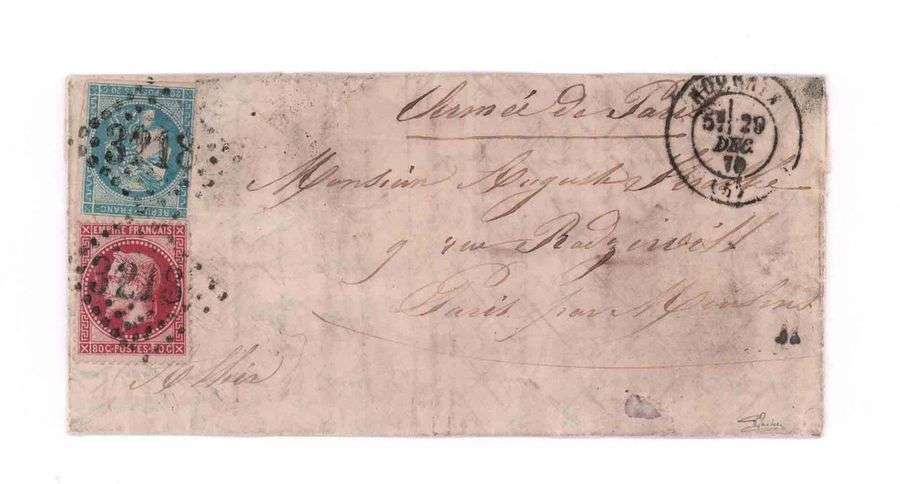 3218
REPUB FRANC
EMPIRE FRANÇAIS
3218
80C·POSTES·80C
ROUBAIX
5E 29
DEC.
70
(57)
Armée de Paris
Monsieur Auguste
9 rue Radziwill
Paris par Moulins
Allier